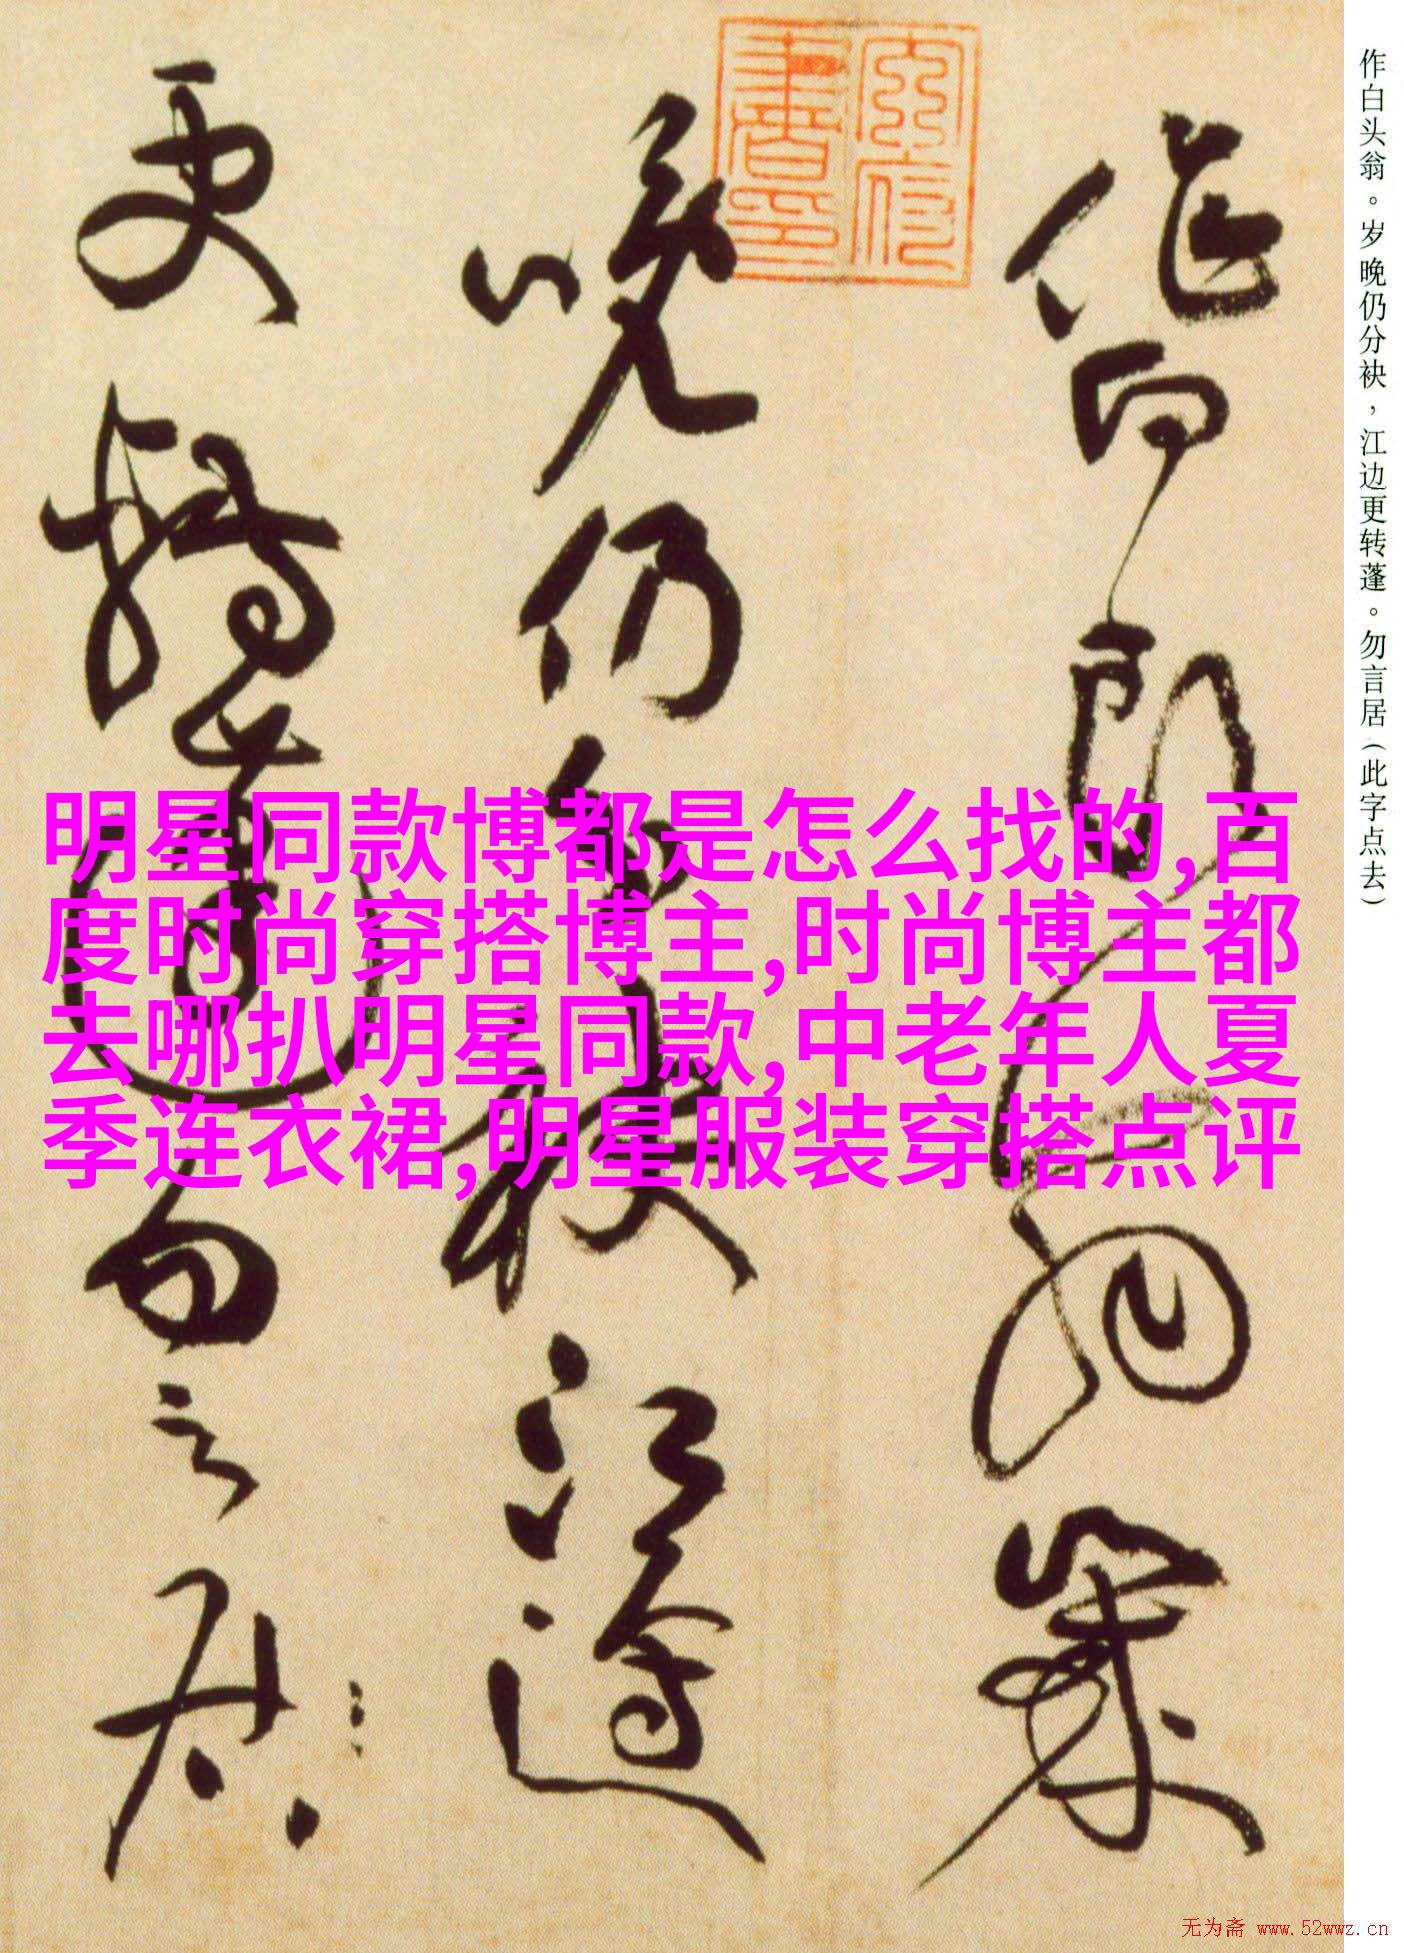 作白头翁。岁晚仍分袂，江边更转蓬。勿言居（此字点去）
作白頭翁歲
晚仍分袂江邊
更轉蓬勿言居
明星同款博都是怎么找的,百
度时尚穿搭博主,时尚博主都
去哪扒明星同款,中老年人夏
季连衣裙,明星服装穿搭点评
无为斋 www.52wwz.cn